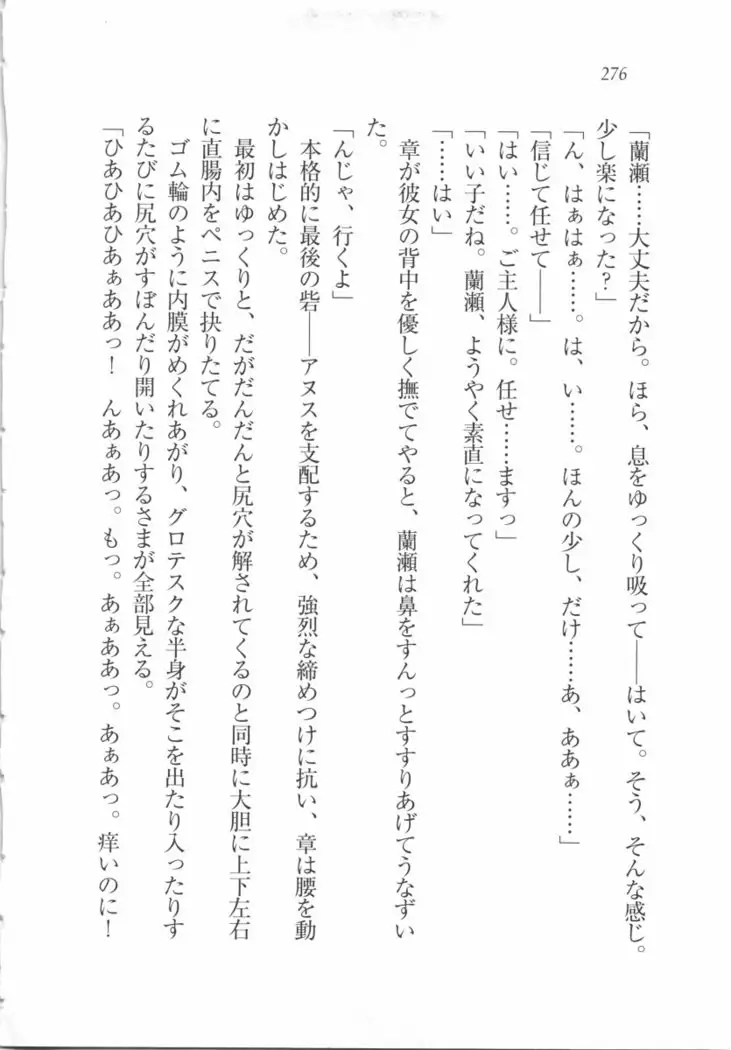 276
「蘭瀬……大丈夫だから。ほら、息をゆっくり吸って――はいて。そう、そんな感じ。
少し楽になった?」
「ん、はぁはぁ……。は、い……。ほんの少し、だけ……あ、ああぁ……」
「信じて任せて――」
「はい……。ご主人様に。任せ……ますっ」
「いい子だね。蘭瀬、ようやく素直になってくれた」
「……はい」
章が彼女の背中を優しく撫でてやると、蘭瀬は鼻をすんっとすすりあげてうなずい
た。
「んじゃ、行くよ」
本格的に最後の砦――アヌスを支配するため、強烈な締めつけに抗い、章は腰を動
かしはじめた。
最初はゆっくりと、だがだんだんと尻穴が解されてくるのと同時に大胆に上下左右
に直腸内をペニスで抉りたてる。
ゴム輪のように内膜がめくれあがり、グロテスクな半身がそこを出たり入ったりす
るたびに尻穴がすぼんだり開いたりするさまが全部見える。
「ひあひあひあぁああっ! んあぁあっ。もっ。あぁああっ。あぁあっ。痒いのに!